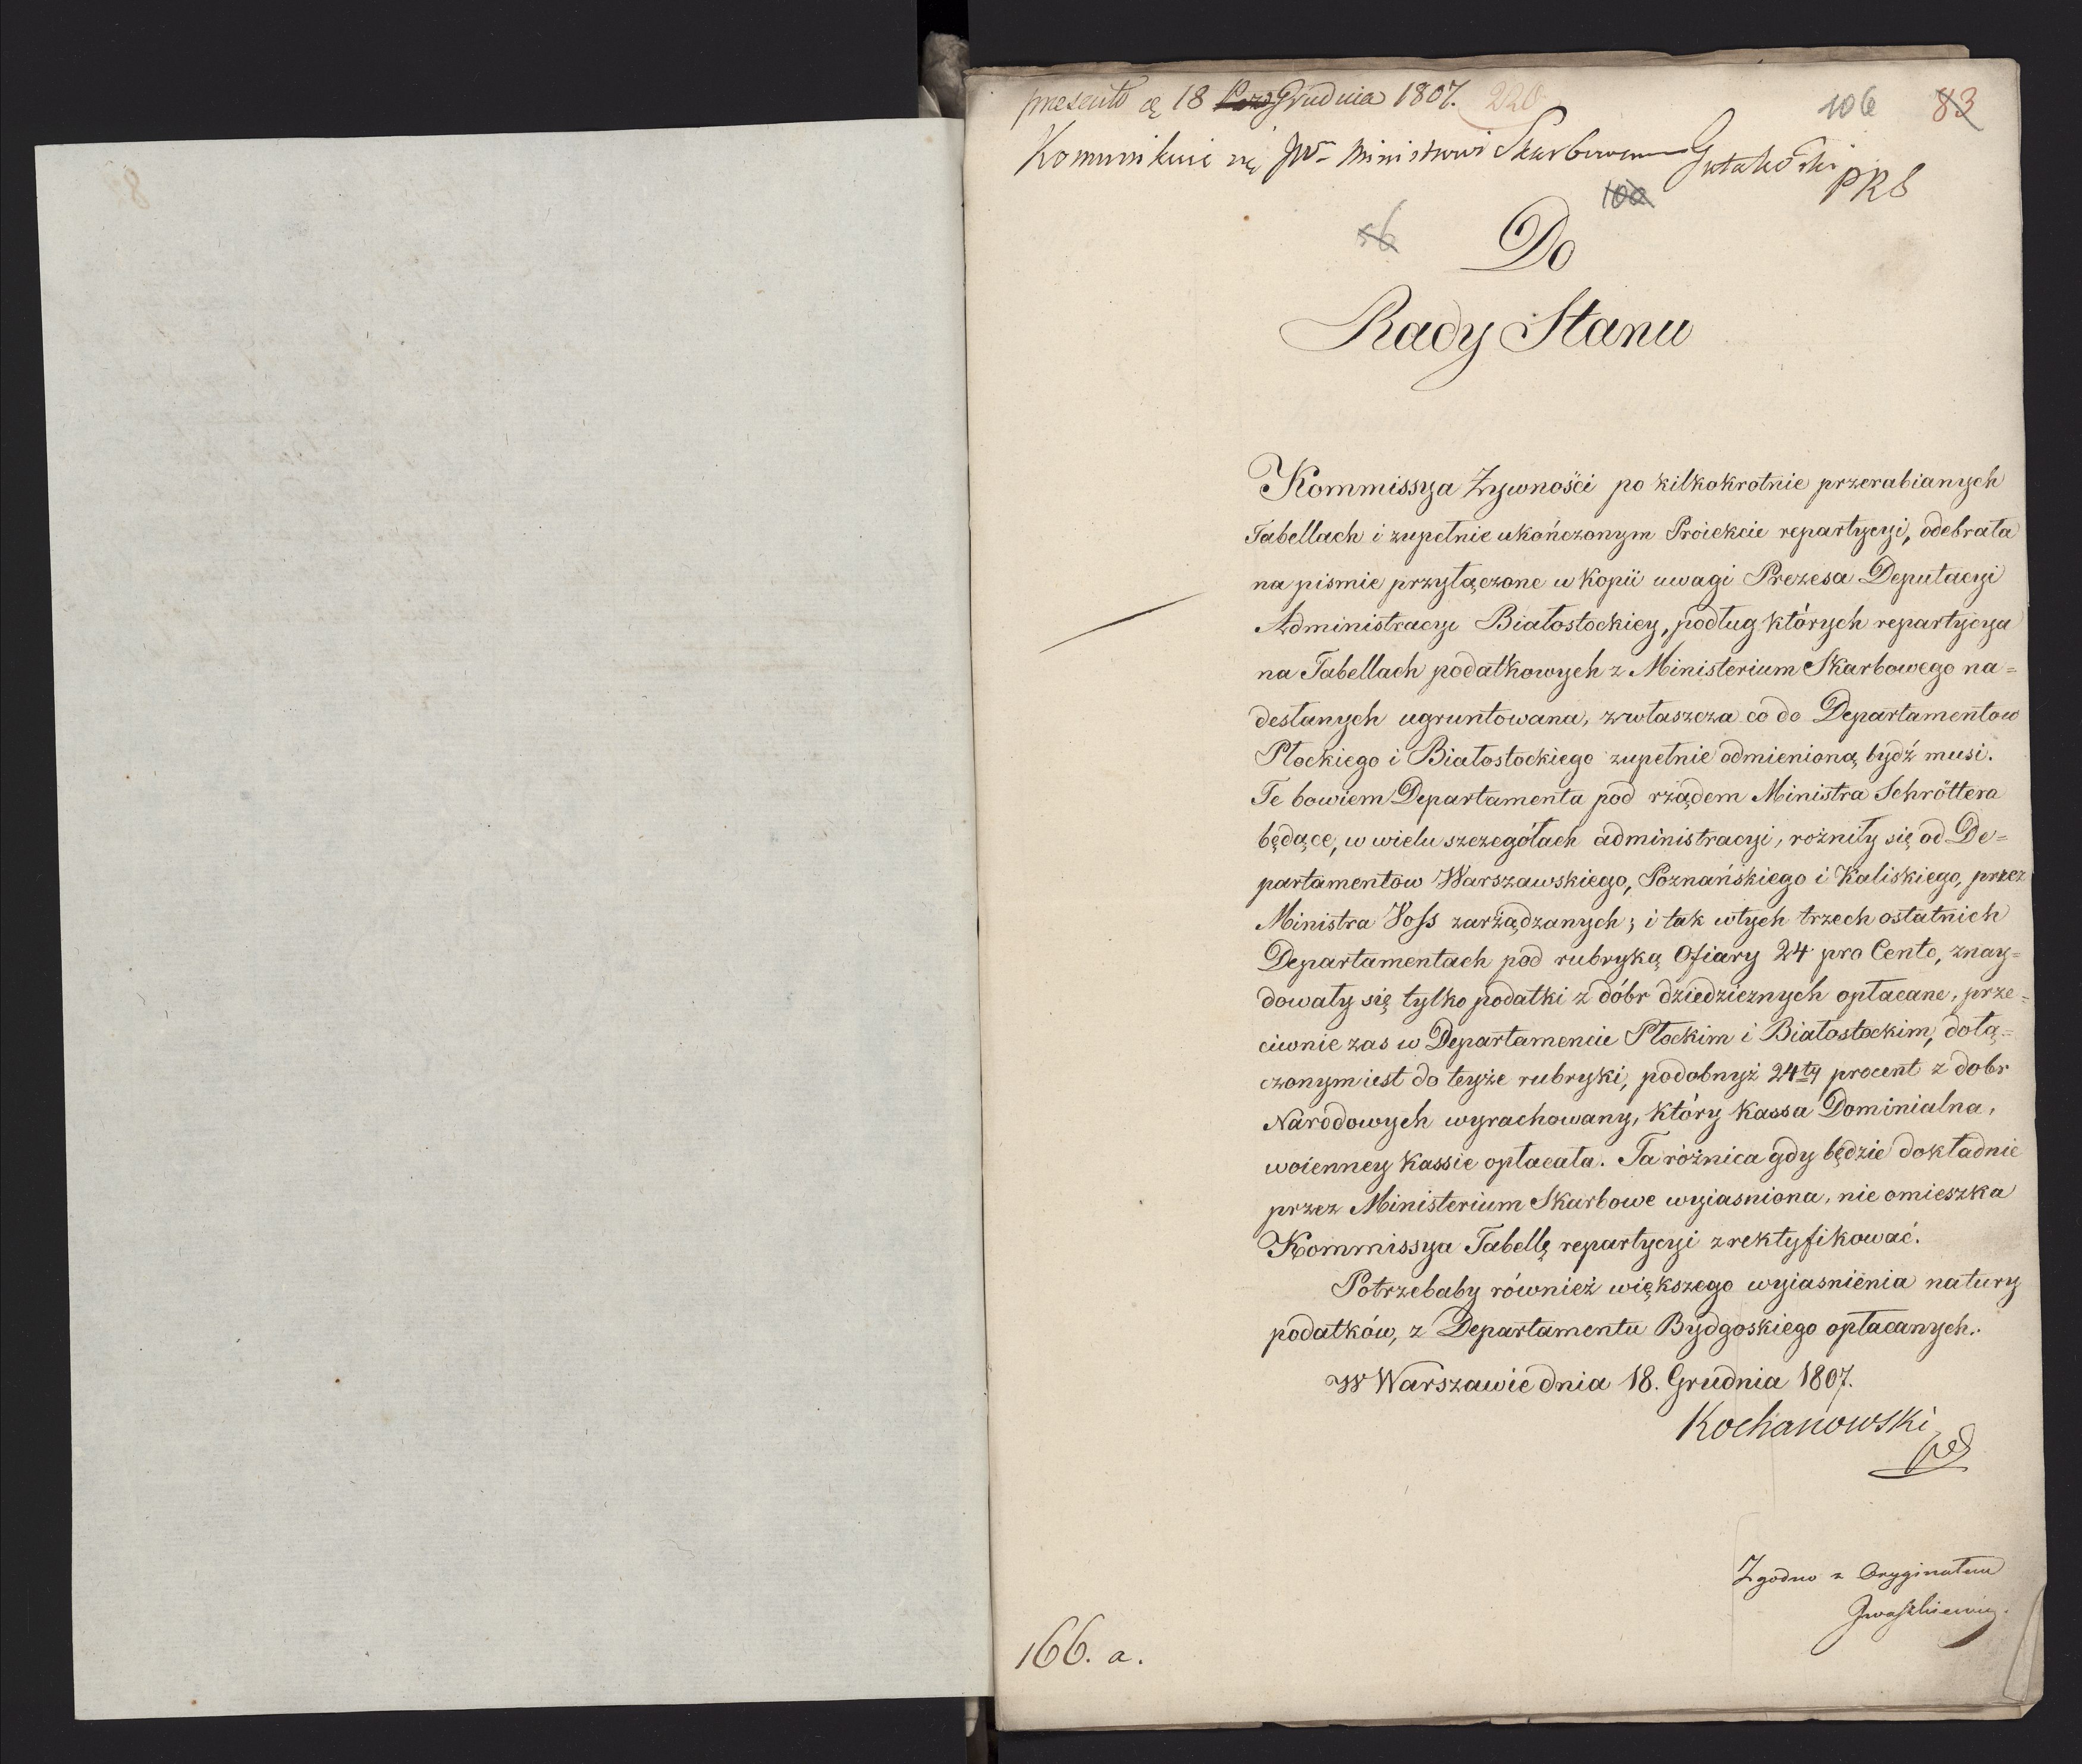 presento a 18 Grudnia 1807. 220
106 83
Komunikuie się JW. Ministrowi Skarbowemu Gutakowski
PRS
100
56
Do
Rady Stanu
Kommissya Żywności po kilkokrotnie przerabianych
Tabellach i zupełnie ukończonym Proiekcie repartycyi, odebrała
na pismie przyłączone w Kopii uwagi Prezesa Deputacyi
Administracyi Białostockiey, podług których repartycya
na Tabellach podatkowych z Ministerium Skarbowego na=
desłanych ugruntowana, zwłaszcza co do Departamentow
Płockiego i Białostockiego zupełnie odmienioną bydź musi.
Te bowiem Departamenta pod rządem Ministra Schröttera
będące, w wielu szczegółach administracyi, rożniły się od De=
partamentow Warszawskiego, Poznańskiego i Kaliskiego, przez
Ministra Voss zarządzanych; i tak w tych trzech ostatnich
Departamentach pod rubryką Ofiary 24 pro Cento, znay=
dowały się tylko podatki z dóbr dziedzicznych opłacane, prze=
ciwnie zas w Departamencie Płockim i Białostockim, dołą=
czonym iest do teyże rubryki, podobnyż 24ty procent z dobr
Narodowych wyrachowany, który Kassa Dominialna,
woienney Kassie opłacała. Ta różnica gdy będzie dokładnie
przez Ministerium Skarbowe wyiasniona, nie omieszka
Kommissya Tabellę repartycyi zrektyfikować.
Potrzebaby również większego wyiasnienia natury
podatków, z Departamentu Bydgoskiego opłacanych.
W Warszawie dnia 18. Grudnia 1807.
Kochanowski
Zgodno z Oryginałem
Iwaszkiewicz.
166. a.